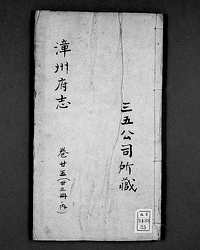 三五公司所藏
漳州府志
卷廿五(廿三冊ノ內)